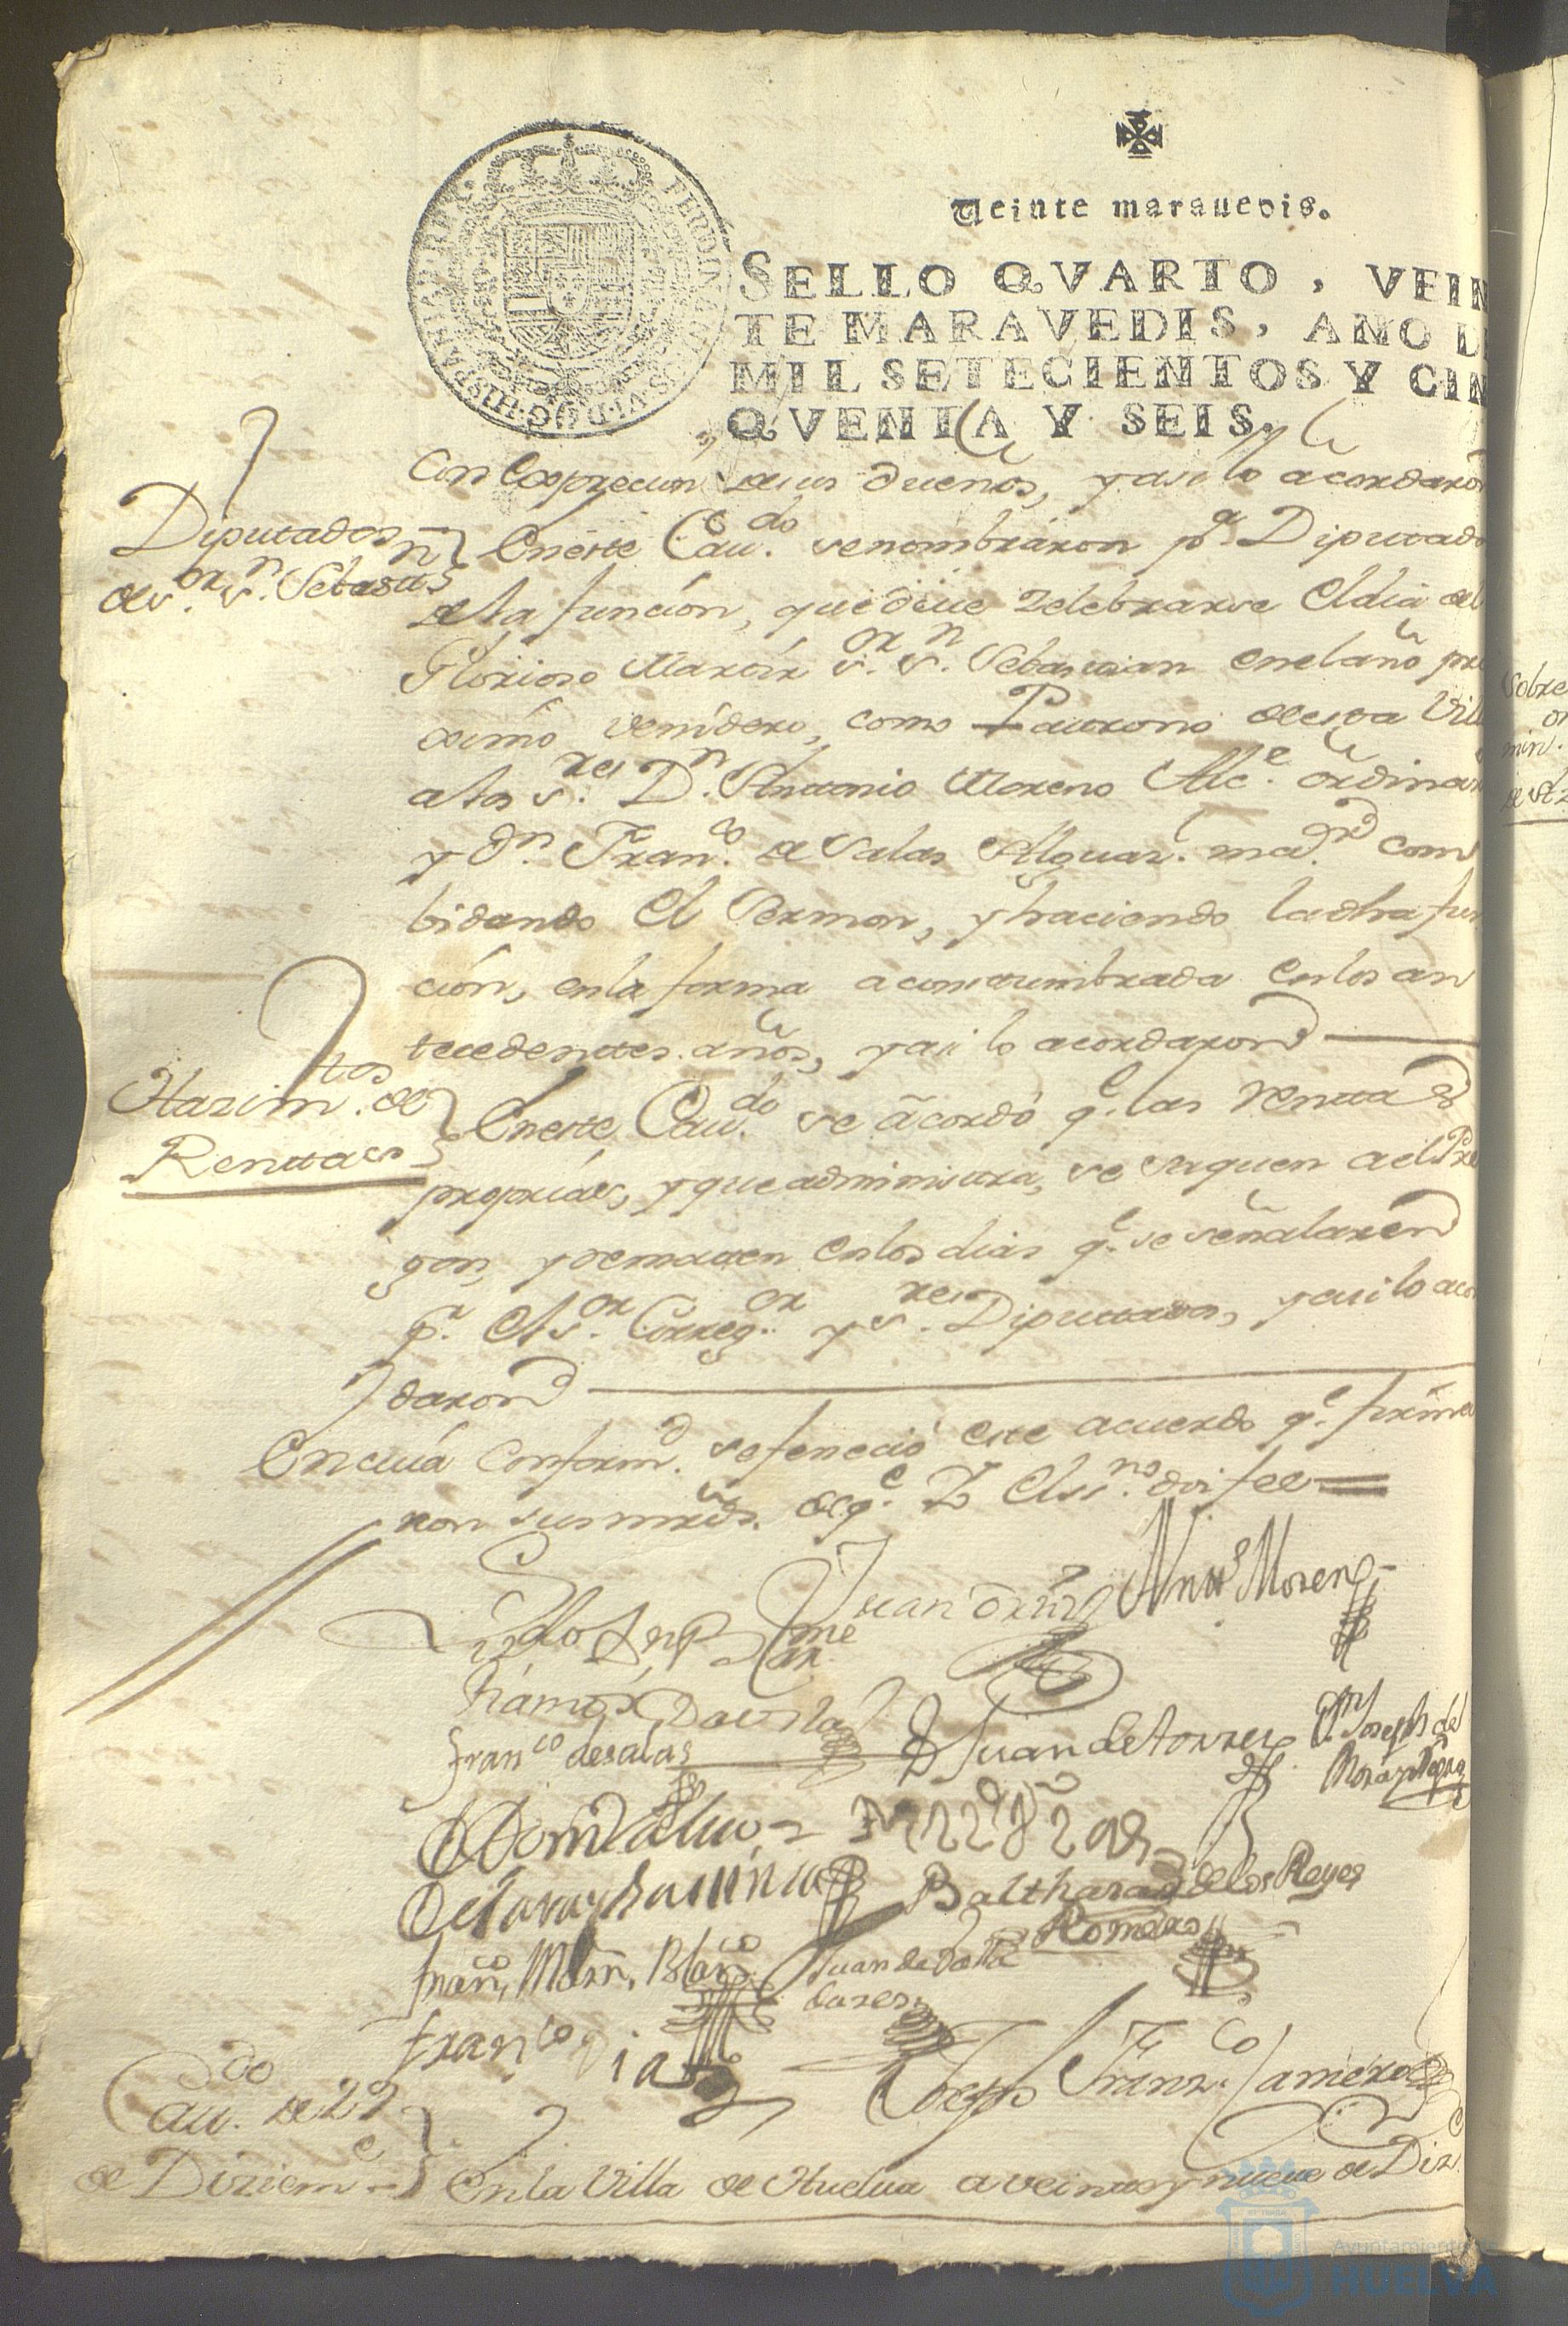 Veinte marauedis.
SELLO QVARTO, VEIN
TE MARAVEDIS, AÑO D
MIL SETECIENTOS Y CIN
QVENTA Y SEIS.
con Expreciòn de sus dueños, y asi lo acordaron
Diputados
de s.or s.n Sebastn
En este Cau.do se nombraron p.a Diputado
de la funciòn, que deue Zelebrarse El dia del
Glorioso Martir s.or s.n Sebastian en el año pro
osimo venidero, como Patrono de esta Vill
a los s.res D.n Antonio Moreno Alc.e ordinar
y d.n Fran.co de Salas Alguaz.l ma.or com
bidando El Sermon, y haciendo la dha fun
ciòn, en la forma acomstumbrada en los an
tecedenttes años, y asi lo acordaron
Hazim.tos de
Renttas
En este Cau.do se acordò q.e las Renttas
proprias, y que administra, se saquen a el Pre
gon, y rematten en los dias q.e se señalaren
p.r El s.or Correg.or y s.res Diputtados, y asi lo acor
daron
En cuia Conform.d se feneciò este acuerdo q.e firma
ron sus mrds. de q.e Yo El ss.no doi fee
Juan Ortiz
Antt.o Moreno
Ramos Dauila
Fran.co de salas
Juan de torres
D.n Joseph del
Balthasar de los Reyes
Romero
fran.co Mărn. Blan.co
Juan de
fran.co Diaz
Joseph Fran.co Camero
Cau.do de 29
de Diziem.e
En la Villa de Huelua a veintte y nueue de Diz.e
Sobre
min.
Ayuntamiento de
HUELVA